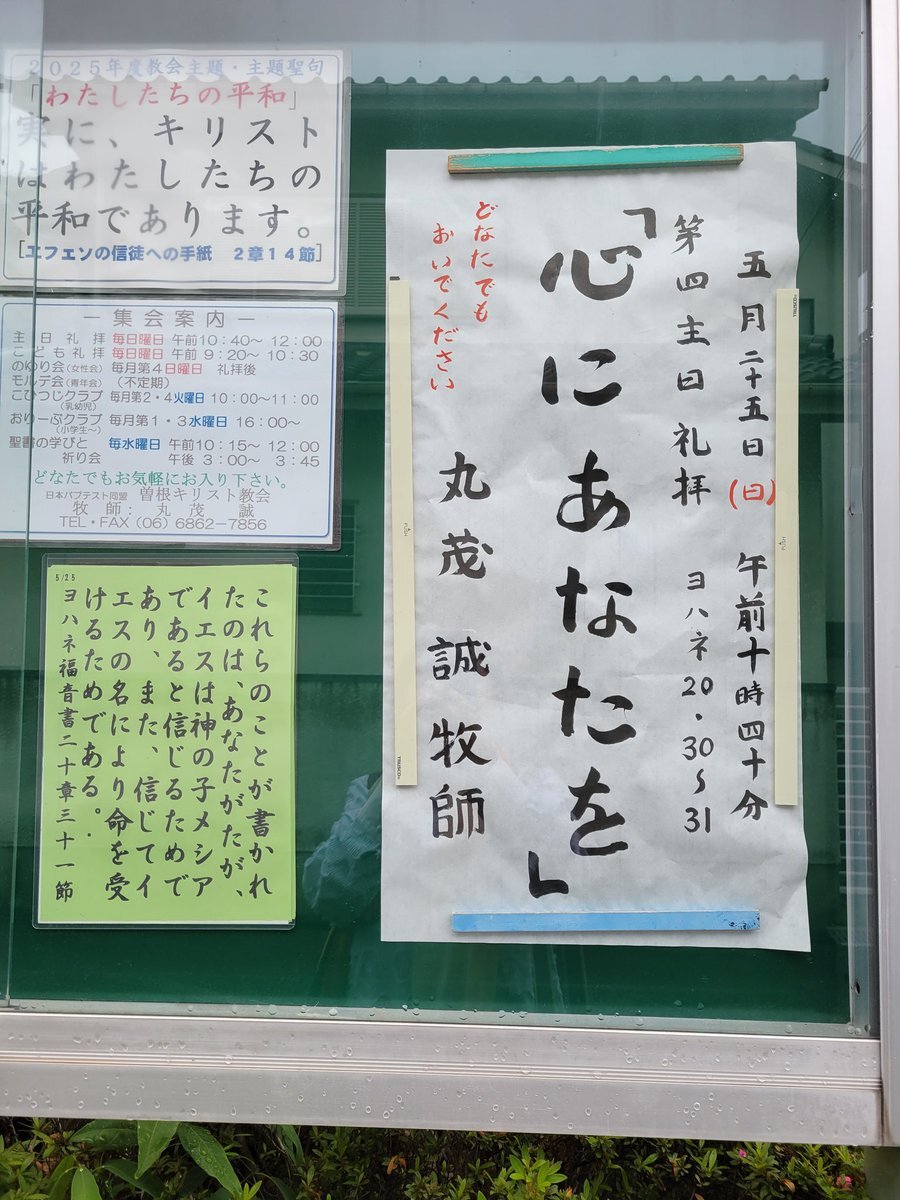 2025年度教会主題・主題聖句
「わたしたちの平和」
実に、キリスト
はわたしたちの
平和であります。
[エフェソの信徒への手紙 2章14節]
― 集会案内 ―
主日礼拝 毎日曜日 午前10:40~ 12:00
こども礼拝 毎日曜日 午前 9:20~ 10:30
のゆり会(女性会) 毎月第4日曜日 礼拝後
モルデ会(青年会) (不定期)
こひつじクラブ 毎月第2・4火曜日 10:00~11:00
(乳幼児)
おりーぶクラブ 毎月第1・3水曜日 16:00~
(小学生~)
聖書の学びと 毎水曜日 午前10:15~ 12:00
祈り会 午後 3:00~ 3:45
どなたでもお気軽にお入り下さい。
日本バプテスト同盟 曽根キリスト教会
牧師: 丸茂 誠
TEL・FAX (06) 6862-7856
5/25
これらのことが書かれ
たのは、あなたがたが、
イエスは神の子メシア
であると信じるためで
あり、また、信じてイ
エスの名により命を受
けるためである。
ヨハネ福音書二十章三十一節
五月二十五日(日) 午前十時四十分
第四主日礼拝 ヨハネ20・30~31
「心にあなたを」
どなたでも
おいでください
丸茂 誠 牧師
PUSH
PUSH
TRUSCO
TRUSCO